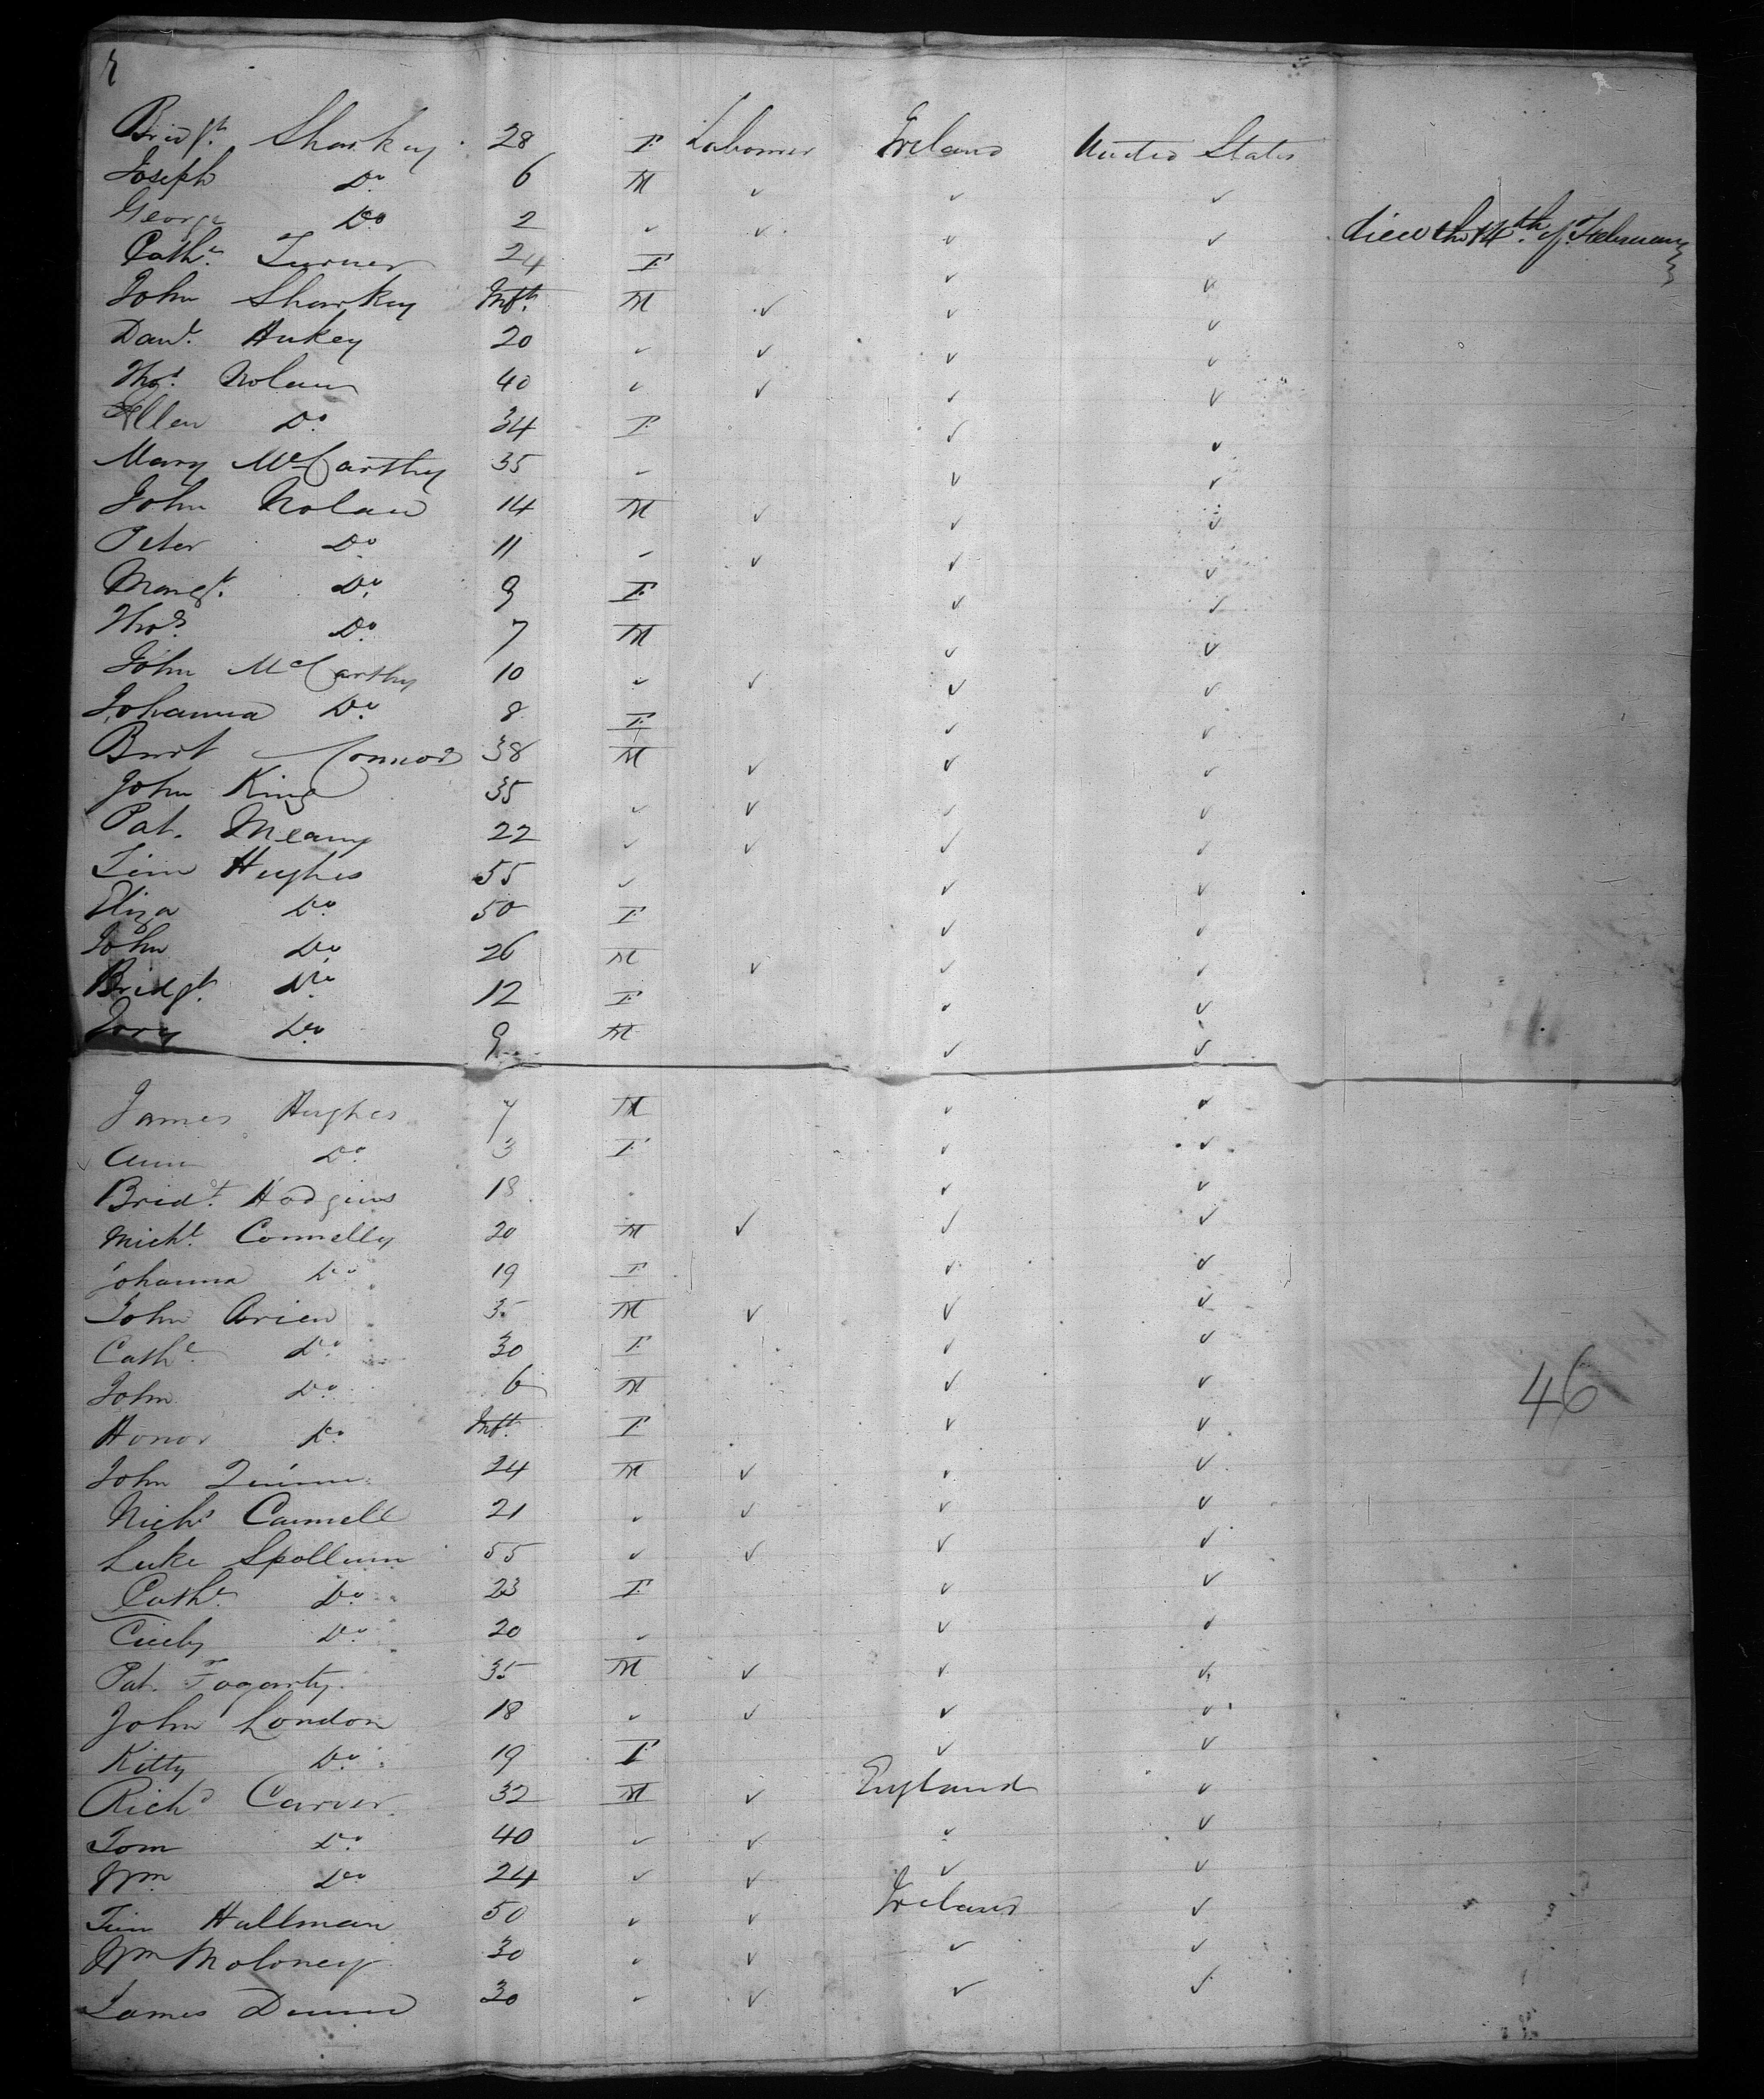 Bridgt. Sharkey 28 F Labourer Ireland United States
Joseph Do. 6 M ✓ ✓ ✓
George Do 2 ✓ ✓ ✓ ✓ died the 14th of February
Cathe. Turner 24 F ✓ ✓
John Sharkey Inft. M ✓ ✓ ✓
Danl. Hukey 20 ✓ ✓ ✓ ✓
Thos. Nolan 40 ✓ ✓ ✓ ✓
Ellen Do. 34 F ✓ ✓
Mary McCarthy 35 ✓ ✓ ✓
John Nolan 14 M ✓ ✓ ✓
Peter Do 11 ✓ ✓ ✓ ✓
Margt. Do. 9 F ✓ ✓
Thos. Do. 7 M ✓ ✓
John McCarthy 10 ✓ ✓ ✓ ✓
Johanna Do. 8 F ✓ ✓
Connor 38 M ✓ ✓ ✓
John King 35 ✓ ✓ ✓ ✓
Pat. Meany 22 ✓ ✓ ✓ ✓
Tim Hughes 55 ✓ ✓ ✓
Eliza Do. 50 F ✓ ✓
John Do 26 M ✓ ✓ ✓
Bridgt. Do. 12 F ✓ ✓
Do 9 M ✓ ✓
James Hughes 7 M ✓ ✓
Ann Do. 3 F ✓ ✓
Bridt. Hodgins 18 ✓ ✓
Michl. Connelly 20 M ✓ ✓ ✓
Johanna Do. 19 F ✓ ✓
John Brien 35 M ✓ ✓ ✓
Cathe. Do. 30 F ✓ ✓
John Do. 6 M ✓ ✓ 46
Honor Do. Inft. F ✓ ✓
John Quinn 24 M ✓ ✓ ✓
Nichs Cannell 21 ✓ ✓ ✓ ✓
Luke Spollum 55 ✓ ✓ ✓ ✓
Cathe. Do. 23 F ✓ ✓
Cicily Do. 20 ✓ ✓ ✓
Pat. Fogarty. 35 M ✓ ✓ ✓
John London 18 ✓ ✓ ✓ ✓
Kitty Do. 19 F ✓ ✓
Richd Carver. 32 M ✓ England ✓
Tom Do. 40 ✓ ✓ ✓ ✓
Wm. Do. 24 ✓ ✓ ✓ ✓
Tim Hallman 50 ✓ ✓ Ireland ✓
Wm Moloney 30 ✓ ✓ ✓ ✓
James Dunn 30 ✓ ✓ ✓ ✓